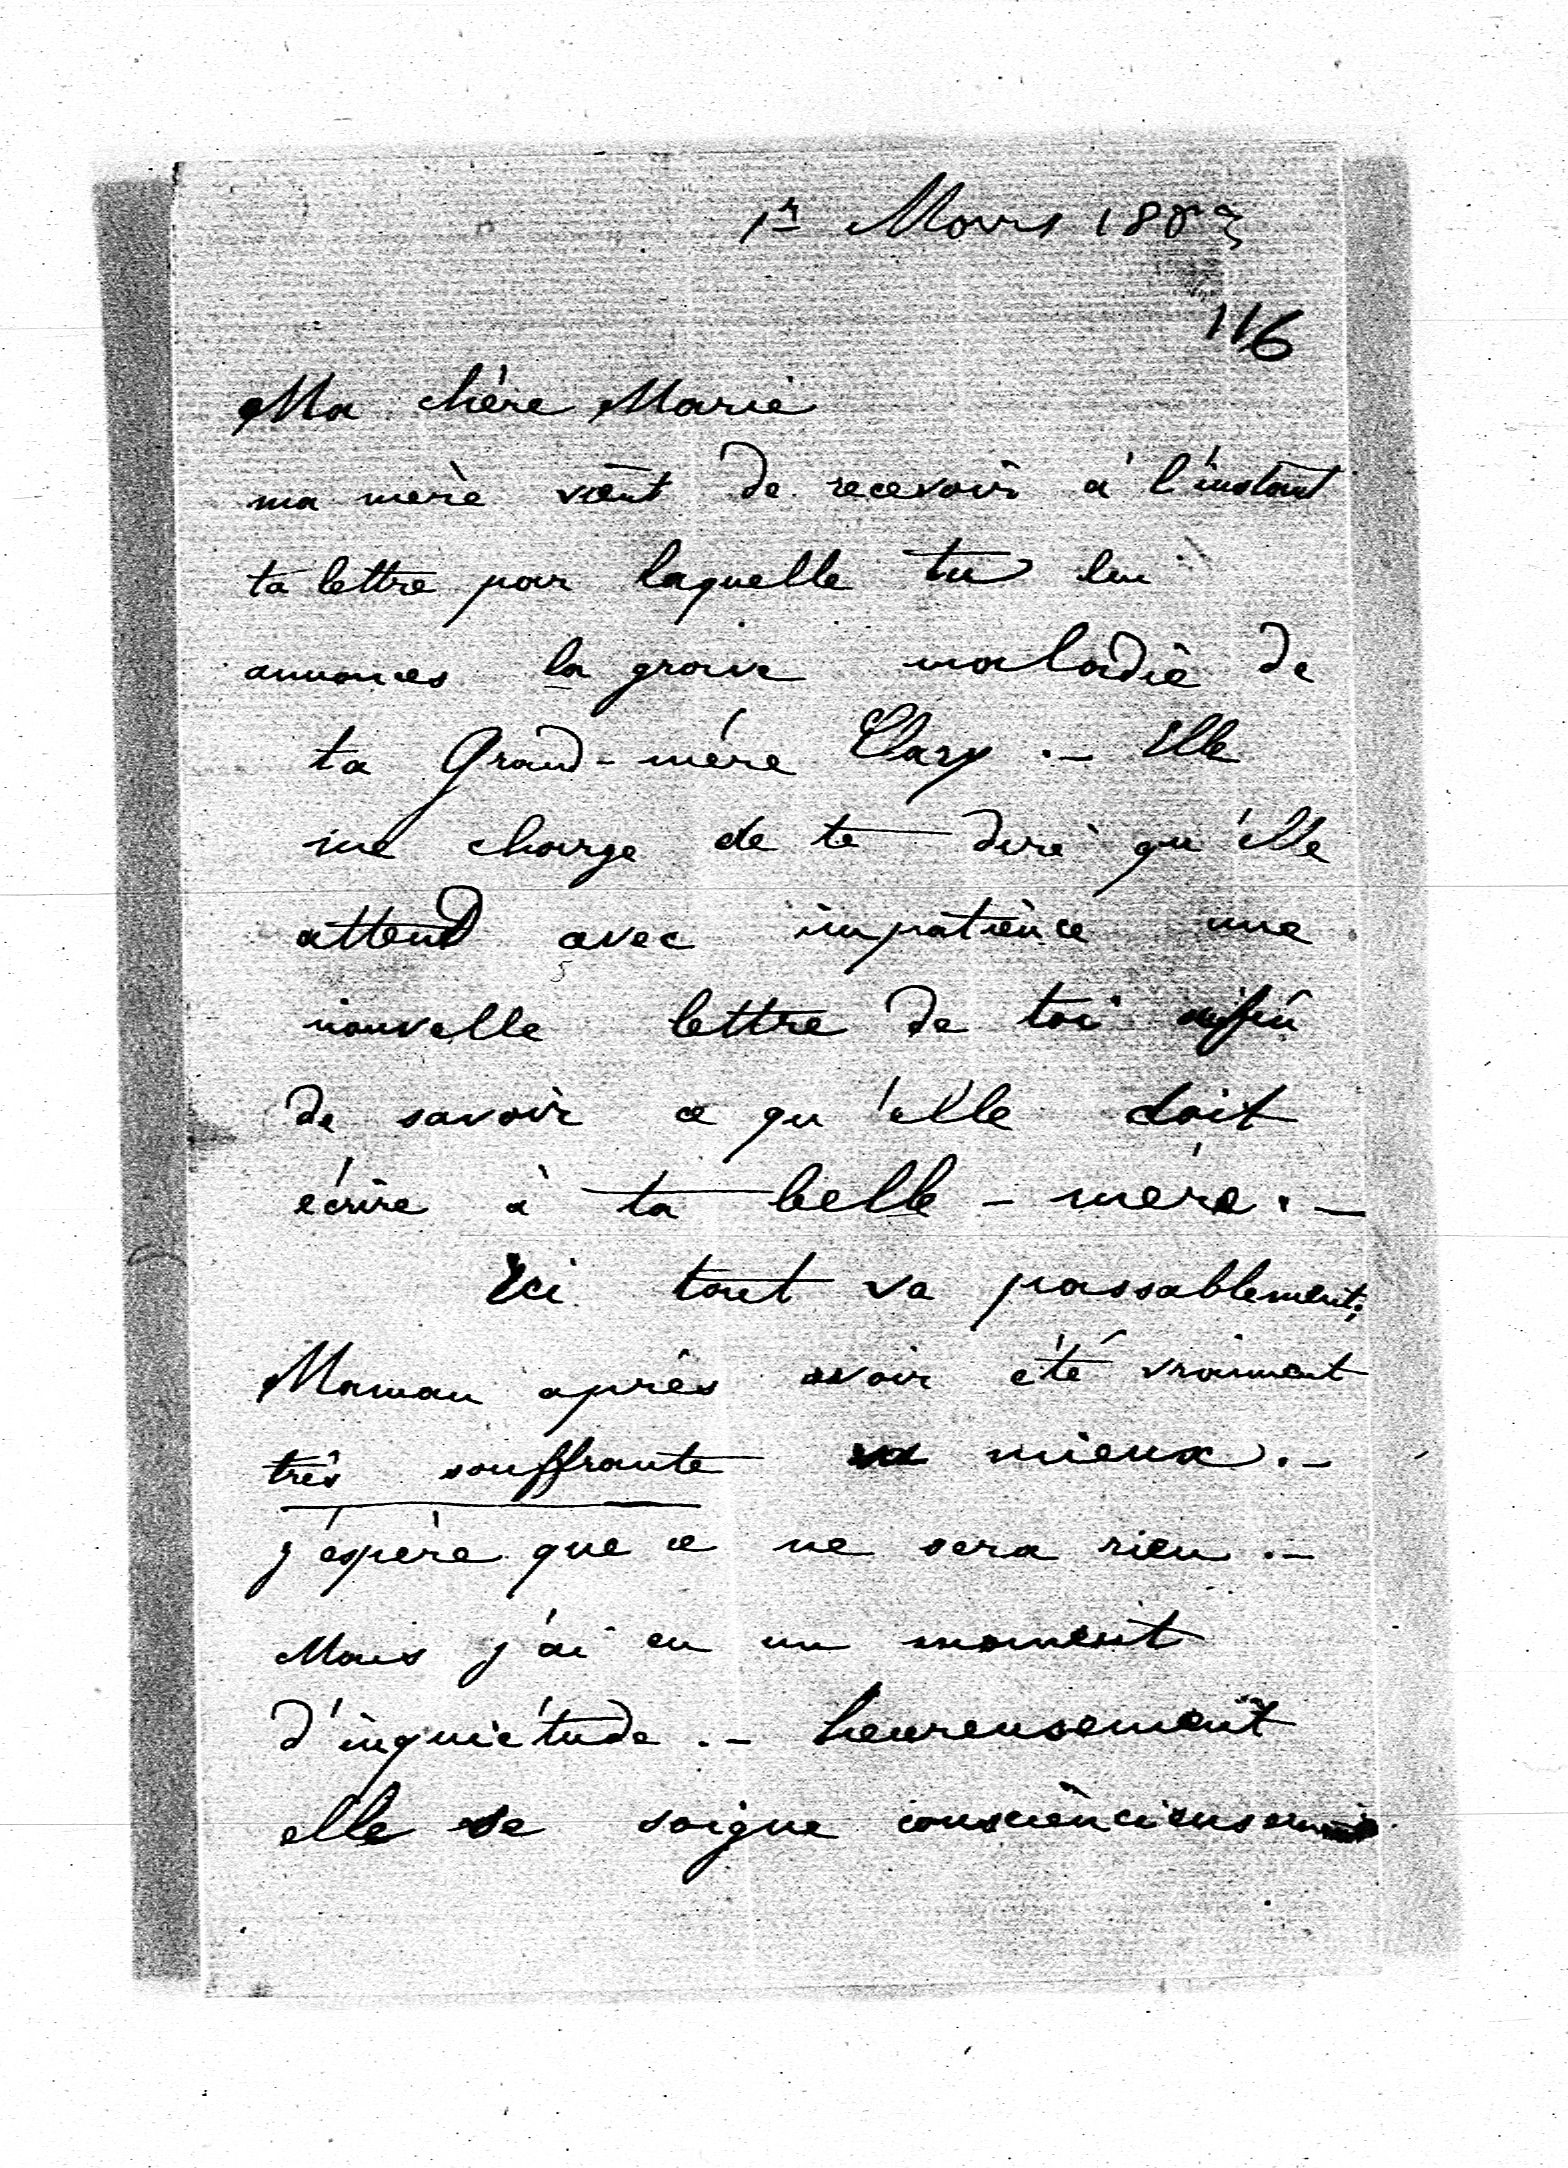 1r Mars 1883
116
Ma chère Marie
ma mère vient de recevoir à l'instant
ta lettre par laquelle tu lui
annonces la grave maladie de
ta Grand-mère Clary .— Elle
me charge de te dire qu'elle
attend avec impatience une
nouvelle lettre de toi afin
de savoir ce qu'elle doit
écrire à ta belle-mère.—
Ici tout va passablement;
Maman après avoir été vraiment
très souffrante va mieux.—
j'espère que ce ne sera rien .—
Mais j'ai eu un moment
d'inquiétude .— heureusement
elle se soigne consciencieusement